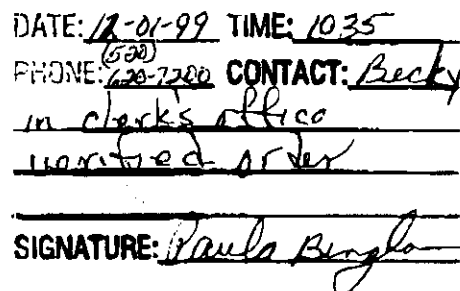 DATE: 12-01-99 TIME: 1035
(520)
PHONE: 620-7200 CONTACT: Becky
in clerk's office
verified order
SIGNATURE: Paula